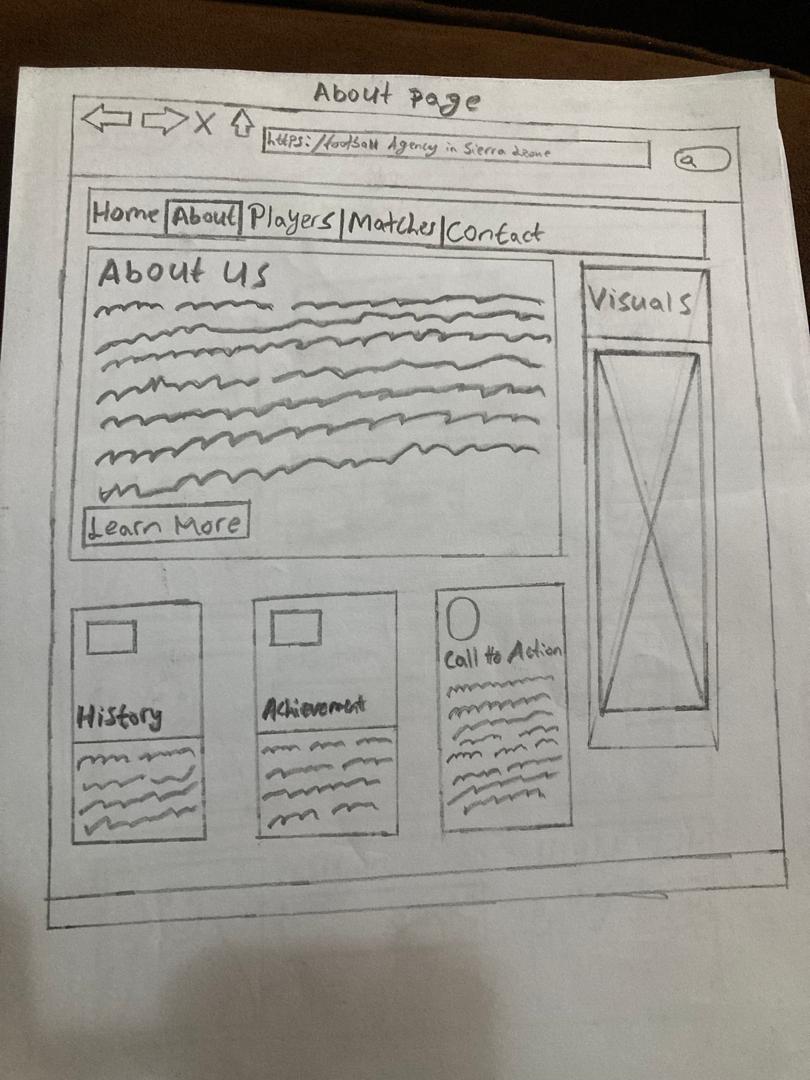 About page
https://football Agency in Sierra Leone
Home About Players Matches Contact
About us
Visuals
Learn More
History
Achievement
Call to Action